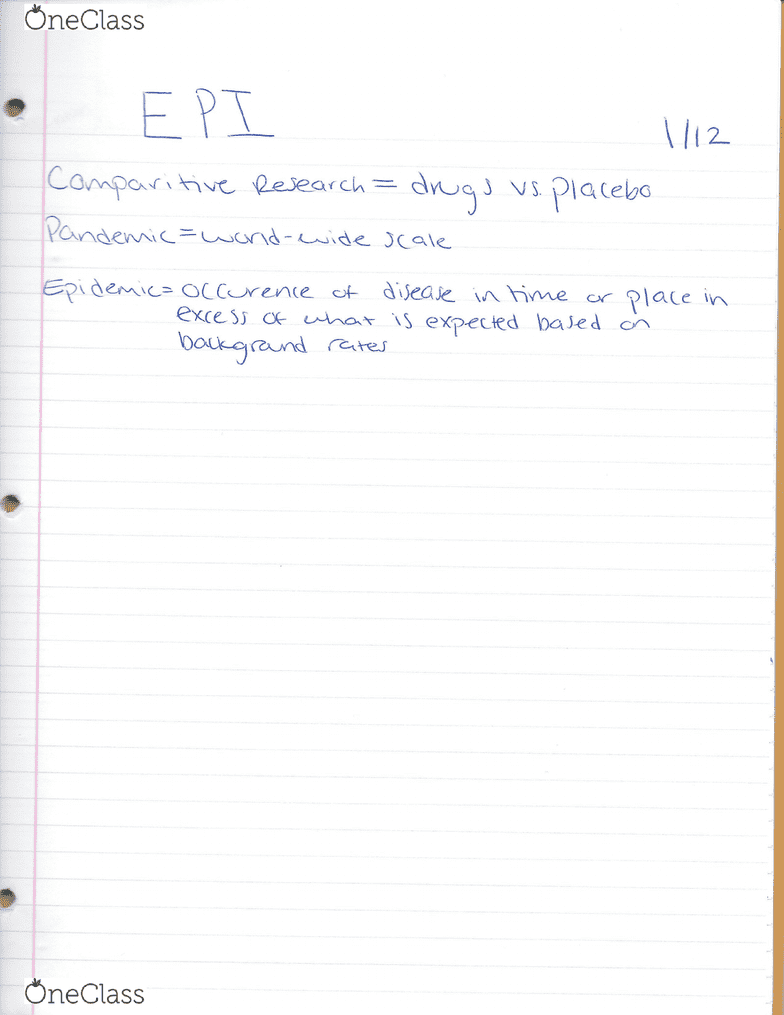 OneClass
EPI
1/12
Comparitive Research = drugs vs. placebo
Pandemic = world-wide scale
Epidemic = occurence of disease in time or place in
excess of what is expected based on
backgrand rates
OneClass